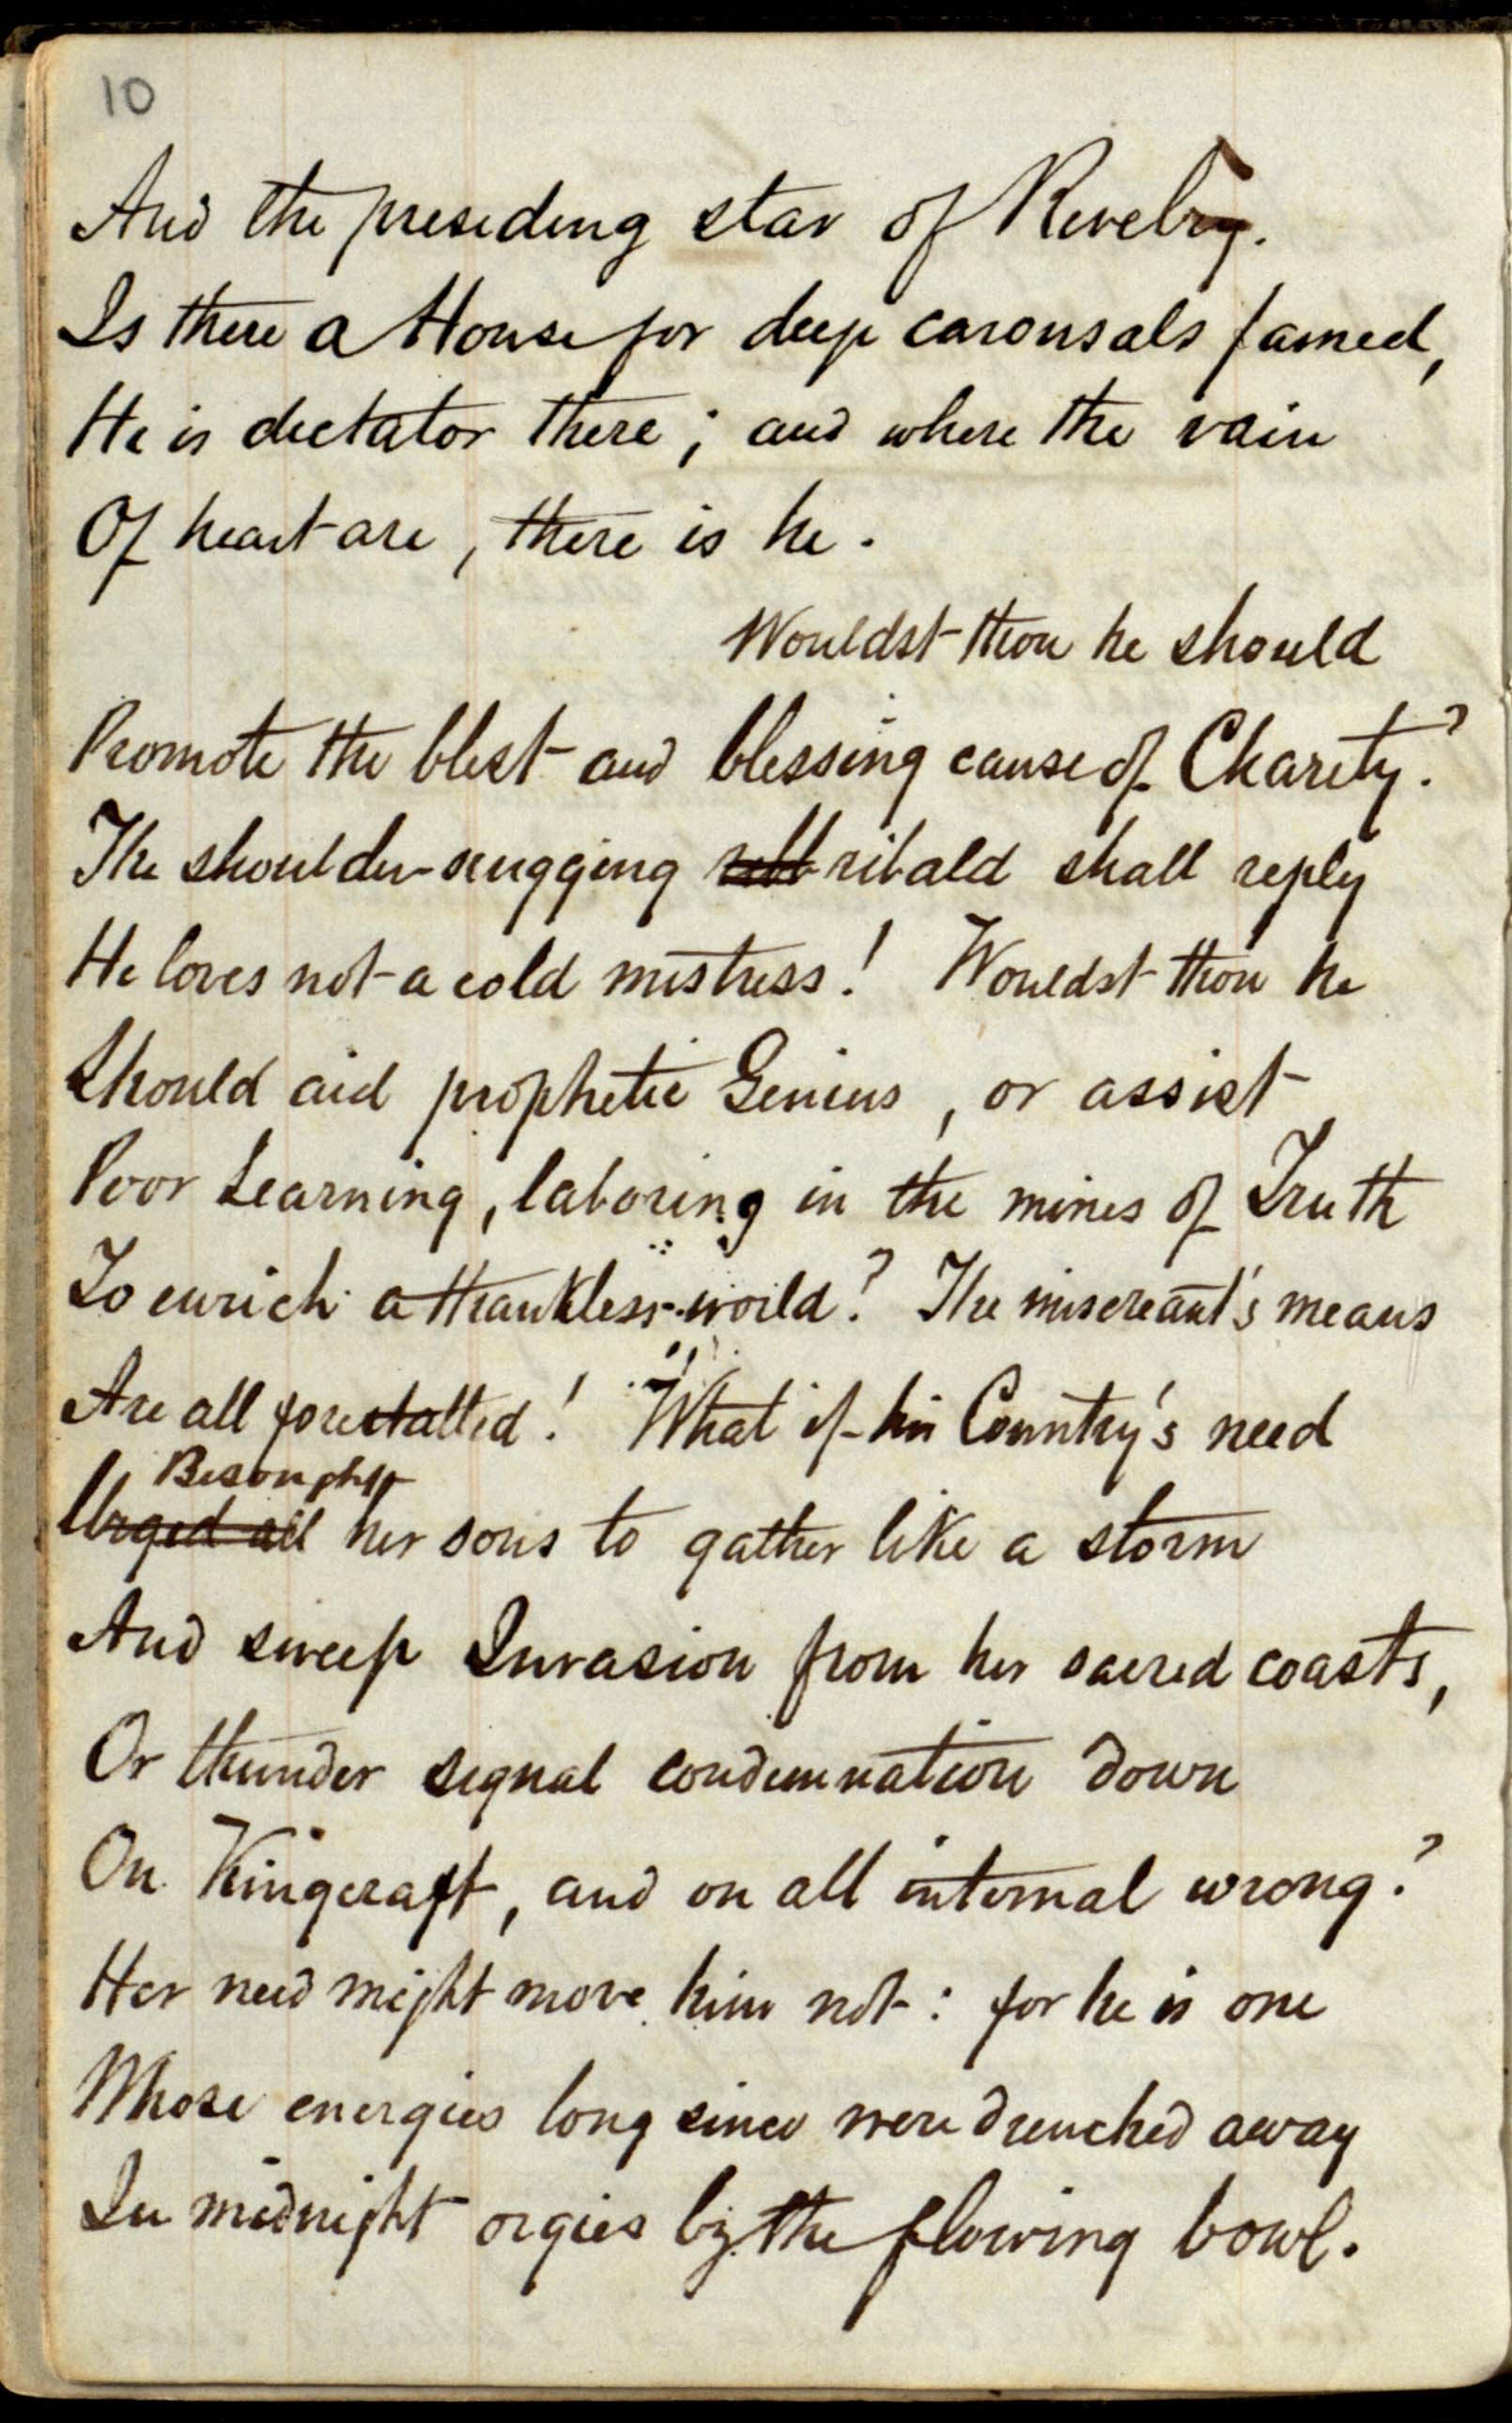 10
And the presiding star of Revelry.
Is there a House for deep carousals famed,
He is dictator there; and where the vain
Of heart are, there is he.
Wouldst thou he should
Promote the blest and blessing cause of Charity?
The shoulder-shrugging ribald shall reply
He loves not a cold mistress! Wouldst thou he
Should aid prophetic Genius, or assist
Poor Learning, laboring in the mines of Truth
To enrich a thankless world? The miscreant's means
Are all forestalled! What if his Country's need
Besought
Urged all her sons to gather like a storm
And sweep Invasion from her sacred coasts,
Or thunder signal condemnation down
On Kingcraft, and on all internal wrong?
Her need might move him not: for he is one
Whose energies long since were drenched away
In midnight orgies by the flowing bowl.